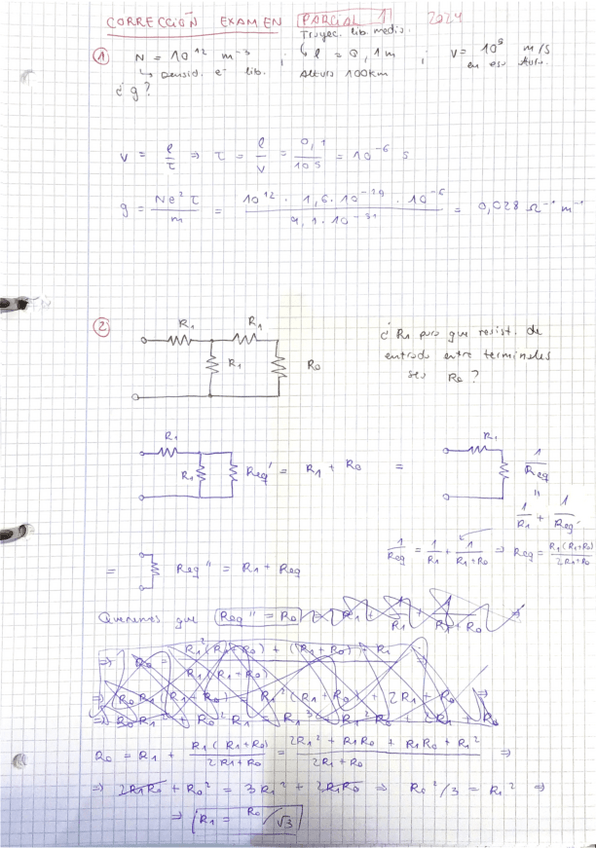 CORRECCIÓN EXAMEN PARCIAL 1 2024
① N = 10¹² m⁻³ ; l = 0,1 m ; v = 10⁵ m/s
↳ densid. e⁻ lib. Trayec. lib. medio. Altura 100km en esa altura.
¿g?
v = l/τ ⇒ τ = l/v = 0,1/10⁵ = 10⁻⁶ s
g = Ne²τ/m = 10¹² · 1,6 · 10⁻²⁹ · 10⁻⁶ / 9,1 · 10⁻³¹ = 0,028 Ω⁻¹ m⁻¹
② R₁ R₁ ¿R₁ para que resist. de
R₁ R₀ entrada entre terminales
sea R₀?
R₁ R₁ Req' = R₁ + R₀ = R₁ 1/Req
"
1/R₁ + 1/Req'
1/Req = 1/R₁ + 1/(R₁+R₀) ⇒ Req = R₁(R₁+R₀)/(2R₁+R₀)
= Req'' = R₁ + Req
Queremos que Req'' = R₀
R₀ = R₁ + R₁(R₁+R₀)/(2R₁+R₀) = (2R₁² + R₁R₀ + R₁R₀ + R₁²)/(2R₁+R₀) ⇒
⇒ 2R₁R₀ + R₀² = 3R₁² + 2R₁R₀ ⇒ R₀²/3 = R₁² ⇒
⇒ R₁ = R₀/√3